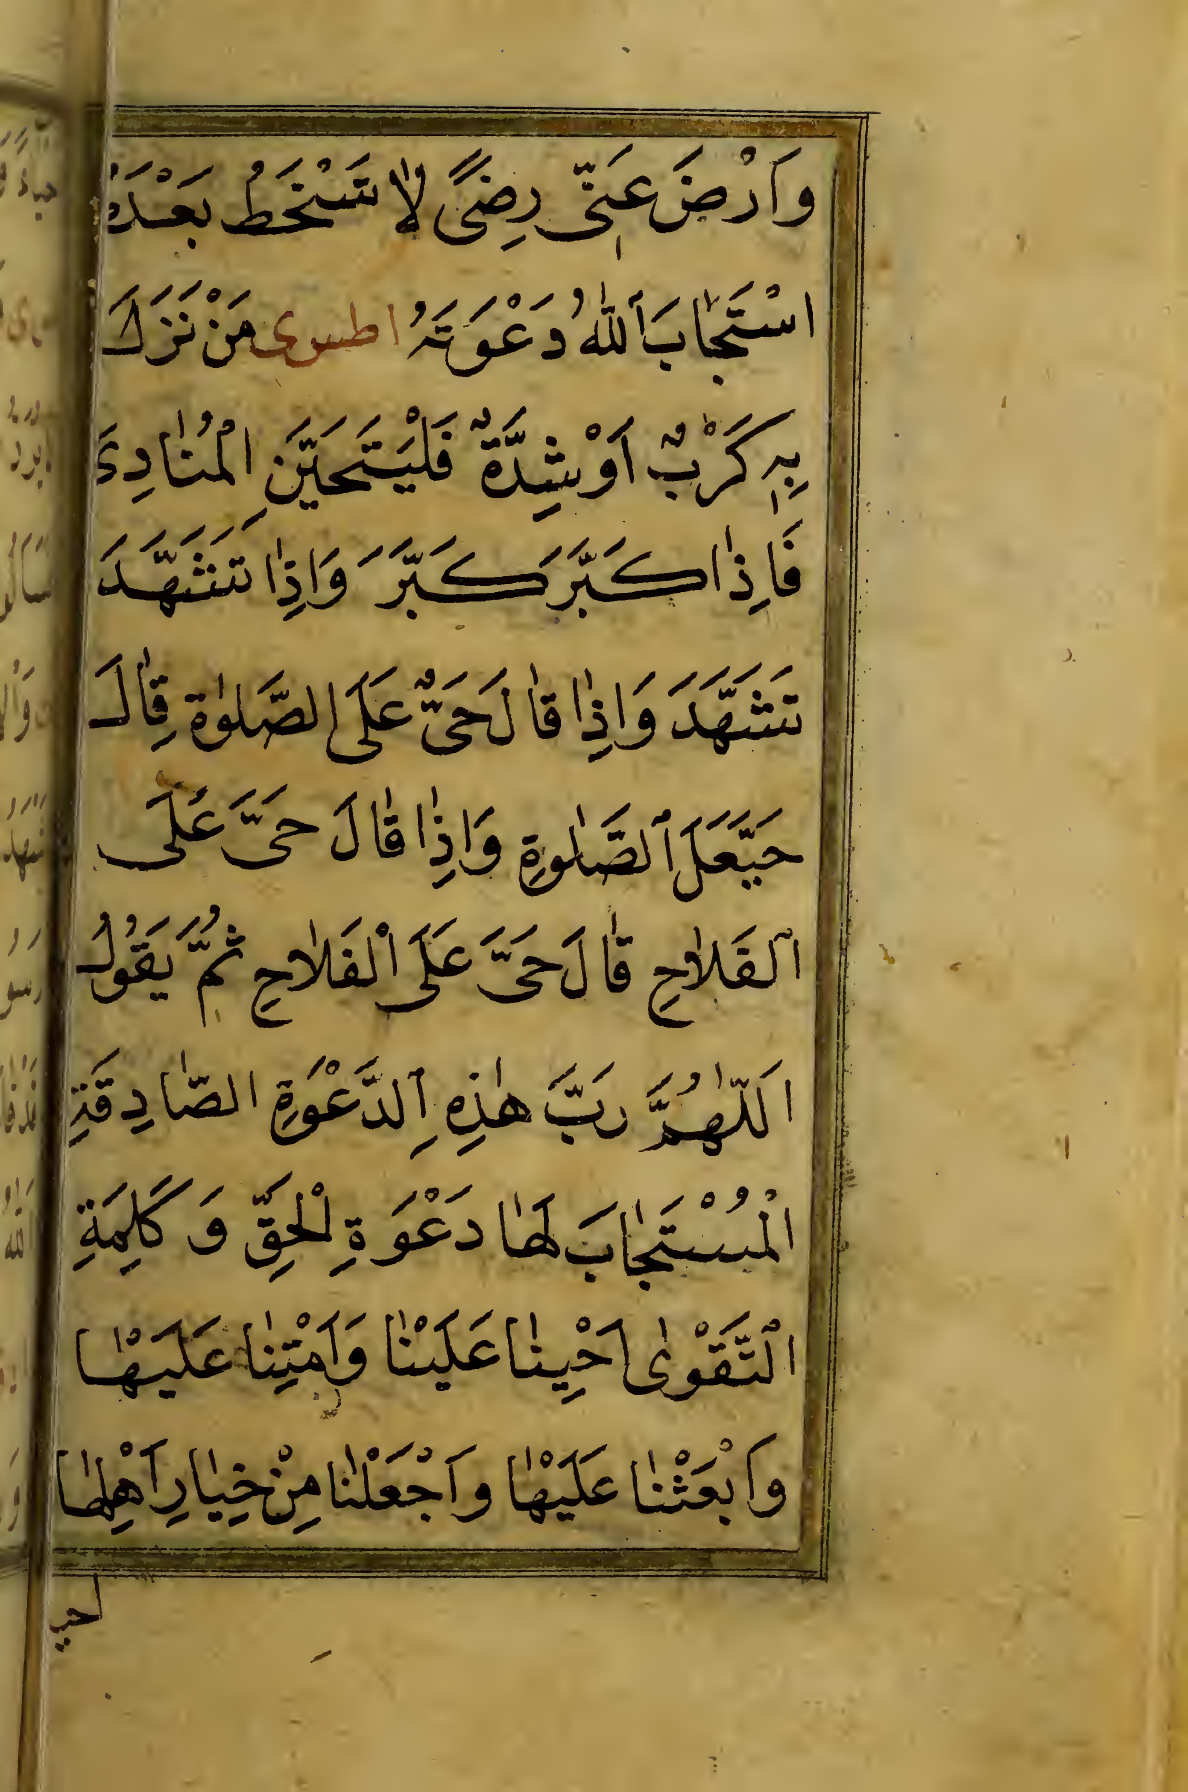 وَاَرْضَ عَنّٖى رِضًى لَا تَسْخَطُ بَعْدَهُ
اسْتَجَابَ ٱللّٰهُ دَعْوَتَهُ اطسى مَنْ نَزَلَ
بِهٖ كَرْبٌ اَوْ شِدَّةٌ فَلْيَتَحَيَّنِ الْمُنَادِىَ
فَاِذَا كَبَّرَ كَبَّرَ وَاِذَا تَشَهَّدَ
تَشَهَّدَ وَاِذَا قَالَ حَىَّ عَلَى الصَّلوٰةِ قَالَ
حَيَّعَلَ ٱلصَّلٰوةِ وَاِذَا قَالَ حَىَّ عَلَى
ٱلفَلَاحِ قَالَ حَىَّ عَلَى الْفَلَاحِ ثُمَّ يَقُولُ
اَللّٰهُمَّ رَبَّ هٰذِهِ ٱلدَّعْوَةِ الصَّادِقَةِ
الْمُسْتَجَابَ لَهَا دَعْوَةِ الْحَقِّ وَ كَلِمَةِ
ٱلتَّقْوٰى اَحْيِنَا عَلَيْنَا وَاَمْتِنَا عَلَيْهَا
وَاَبْعَثْنَا عَلَيْهَا وَاَجْعَلْنَا مِنْ خِيَارِ اَهْلِهَا
احيـ